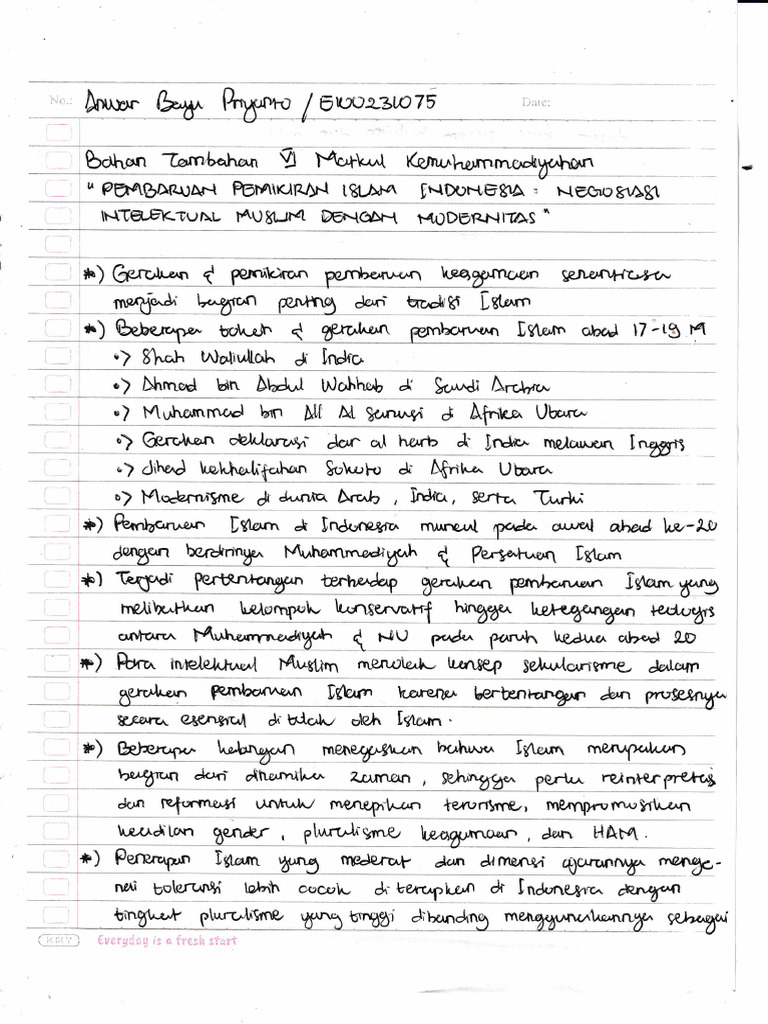 No.: Anwar Bayu Priyanto / E100231075 Date:
Bahan Tambahan VI Matkul Kemuhammadiyahan
"PEMBARUAN PEMIKIRAN ISLAM INDONESIA : NEGOSIASI
INTELEKTUAL MUSLIM DENGAN MODERNITAS"
*) Gerakan & pemikiran pembaruan keagamaan senantiasa
menjadi bagian penting dari tradisi Islam
*) Beberapa tokoh & gerakan pembaruan Islam abad 17-19 M
•> Shah Waliullah di India
•> Ahmad bin Abdul Wahhab di Saudi Arabia
•> Muhammad bin Ali Al Sanusi di Afrika Utara
•> Gerakan deklarasi dar al harb di India melawan Inggris
•> Jihad kekhalifahan Sokoto di Afrika Utara
•> Modernisme di dunia Arab, India, serta Turki
*) Pembaruan Islam di Indonesia muncul pada awal abad ke-20
dengan berdirinya Muhammadiyah & Persatuan Islam
*) Terjadi pertentangan terhadap gerakan pembaruan Islam yang
melibatkan kelompok konservatif hingga ketegangan teologis
antara Muhammadiyah & NU pada paruh kedua abad 20
*) Para intelektual Muslim menolak konsep sekularisme dalam
gerakan pembaruan Islam karena bertentangan dan prosesnya
secara esensial ditolak oleh Islam.
*) Beberapa kalangan menegaskan bahwa Islam merupakan
bagian dari dinamika zaman, sehingga perlu reinterpretasi
dan reformasi untuk menepikan terorisme, mempromosikan
keadilan gender, pluralisme keagamaan, dan HAM.
*) Penerapan Islam yang moderat dan dimensi ajarannya menge-
nai toleransi lebih cocok diterapkan di Indonesia dengan
tingkat pluralisme yang tinggi dibanding menggunakannya sebagai
KIKY Everyday is a fresh start